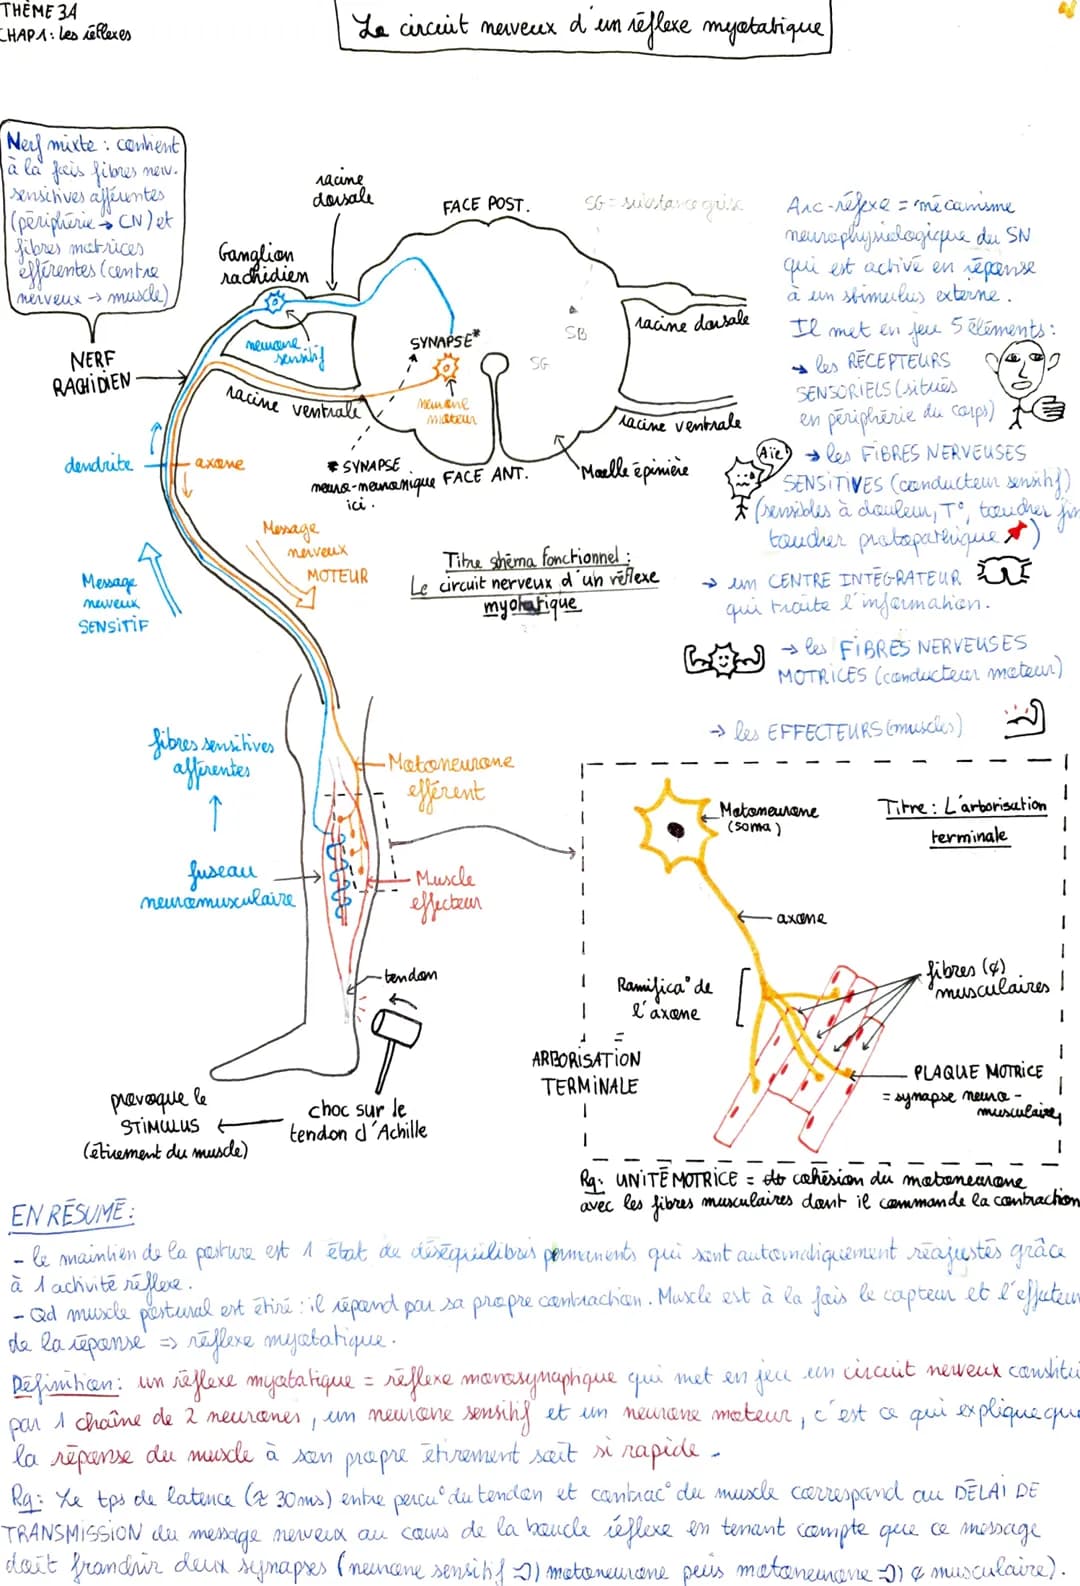 THÈME 3A
CHAP 1 : Les réflexes
Le circuit nerveux d'un réflexe myotatique
Nerf mixte : contient
à la fois fibres nerv.
sensitives afférentes
(périphérie → CN) et
fibres motrices
efférentes (centre
nerveux → muscle)
NERF
RACHIDIEN
racine
dorsale
Ganglion
rachidien
neurone
sensitif
FACE POST.
SG = substance grise
SYNAPSE*
SB
SG
neurone
moteur
racine ventrale
racine dorsale
racine ventrale
* SYNAPSE
neuro-neuronique
ici.
FACE ANT.
Moelle épinière
dendrite
axone
Message
nerveux
MOTEUR
Message
nerveux
SENSITIF
Titre shéma fonctionnel :
Le circuit nerveux d'un réflexe
myotatique
Arc-réflexe = mécanisme
neurophysiologique du SN
qui est activé en réponse
à un stimulus externe.
Il met en jeu 5 éléments :
→ les RÉCEPTEURS
SENSORIELS (situés
en périphérie du corps)
Aïe!
→ les FIBRES NERVEUSES
SENSITIVES (conducteur sensitif)
(sensibles à douleur, T°, toucher fin
toucher protopathique )
→ un CENTRE INTÉGRATEUR
qui traite l'information.
→ les FIBRES NERVEUSES
MOTRICES (conducteur moteur)
→ les EFFECTEURS (muscles)
fibres sensitives
afférentes
Motoneurone
efférent
fuseau
neuromusculaire
Muscle
effecteur
tendon
choc sur le
tendon d'Achille
provoque le
STIMULUS
(étirement du muscle)
Motoneurone
(soma)
Titre : L'arborisation
terminale
axone
Ramifica° de
l'axone
=
ARBORISATION
TERMINALE
fibres (¢)
musculaires
PLAQUE MOTRICE
= synapse neuro-
musculaire
Rq: UNITÉ MOTRICE = cohésion du motoneurone
avec les fibres musculaires dont il commande la contraction
EN RÉSUMÉ :
- le maintien de la posture est 1 état de déséquilibres permanents qui sont automatiquement réajustés grâce
à 1 activité réflexe.
- Qd muscle postural est étiré : il répond par sa propre contraction. Muscle est à la fois le capteur et l'effuteur
de la réponse => réflexe myotatique.
Définition : un réflexe myotatique = réflexe monosynaptique qui met en jeu un circuit nerveux constitué
par 1 chaîne de 2 neurones, un neurone sensitif et un neurone moteur, c'est ce qui explique que
la réponse du muscle à son propre étirement soit si rapide.
Rq: Le tps de latence (≈ 30ms) entre percu° du tendon et contrac° du muscle correspond au DÉLAI DE
TRANSMISSION du message nerveux au cours de la boucle réflexe en tenant compte que ce message
doit franchir deux synapses (neurone sensitif ⊃) motoneurone puis motoneurone ⊃) ¢ musculaire).